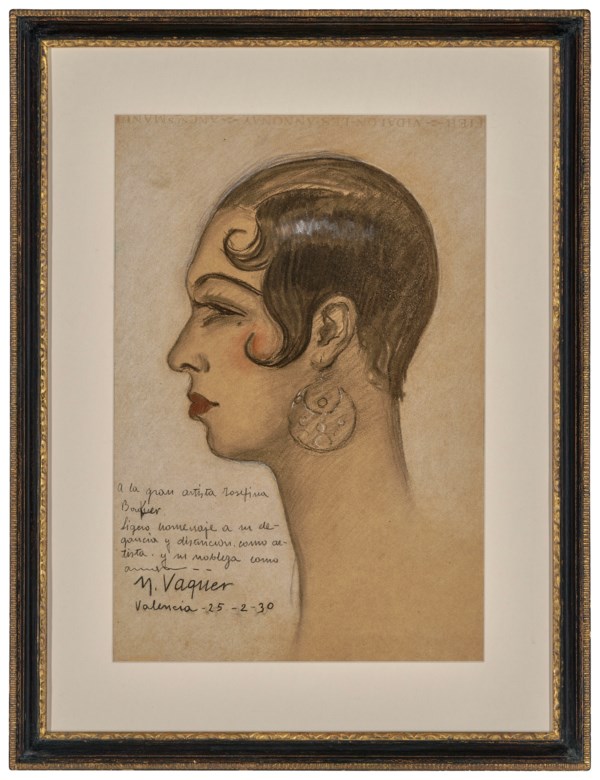 A la gran artista Josefina
Baker
Ligero homenaje a su ele-
gancia y distinción, como ar-
tista. y su nobleza como
amiga - -
N. Vaquer
Valencia -25 -2 -30